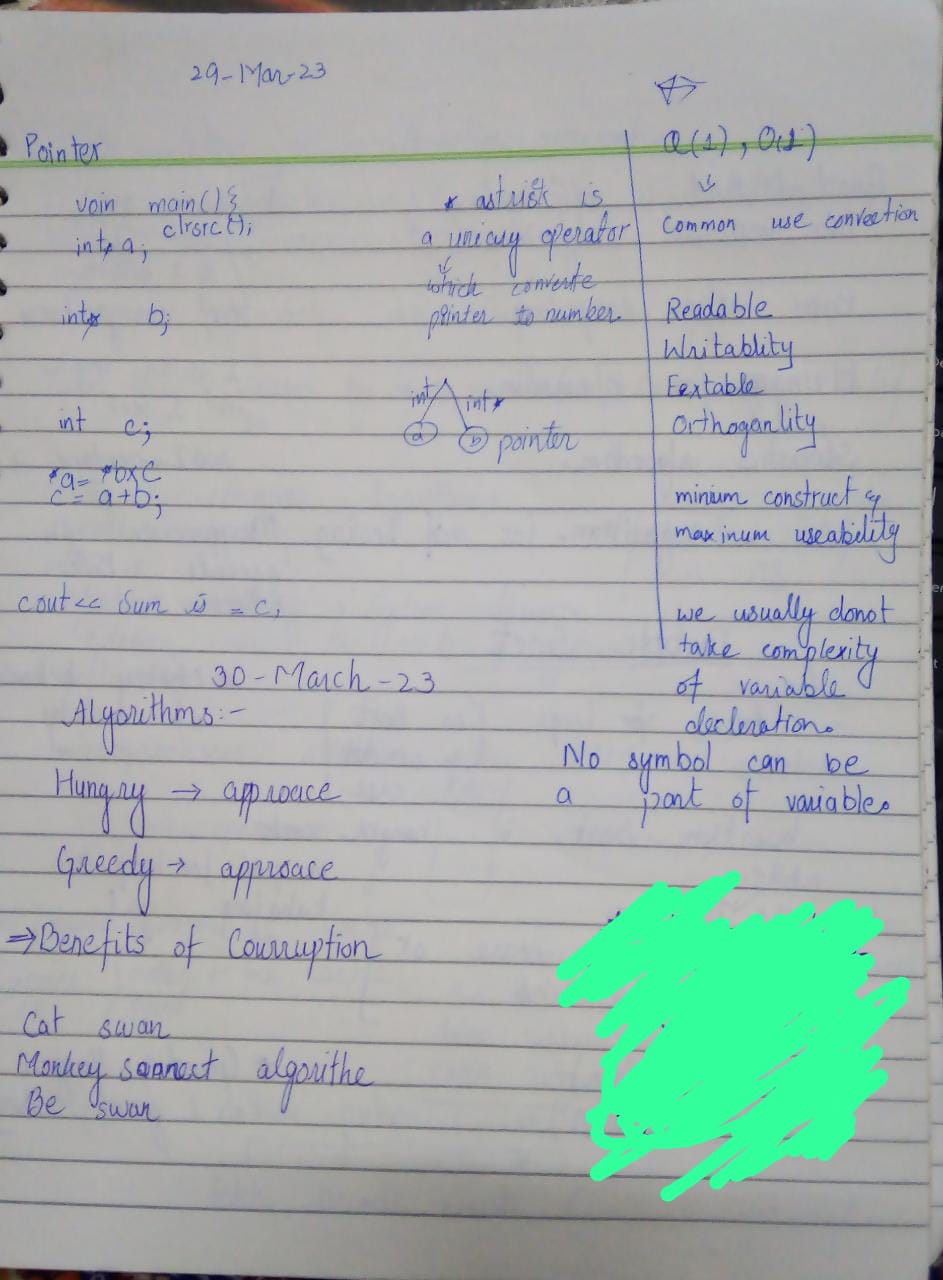 29-Mar-23
Pointer
voin main(){
clrsrct);
int* a;
int* b;
int c;
*a= *b×c
c = a+b;
cout<< Sum is = c,
* astrisk is
a unicuy operator
which converte
pointer to number.
int int*
a b pointer
Q(1), O(1)
Common use convection
Readable
Writablity
Eextable
Orthoganlity
minium construct &
maxinum useability
we usually donot
take complexity
of variable
decleration.
No symbol can be
a part of variable.
30-March-23
Algorithms:-
Hungry → approace
Greedy → approace
⇒Benefits of Courruption
Cat swan
Monkey algorithe
Be swan